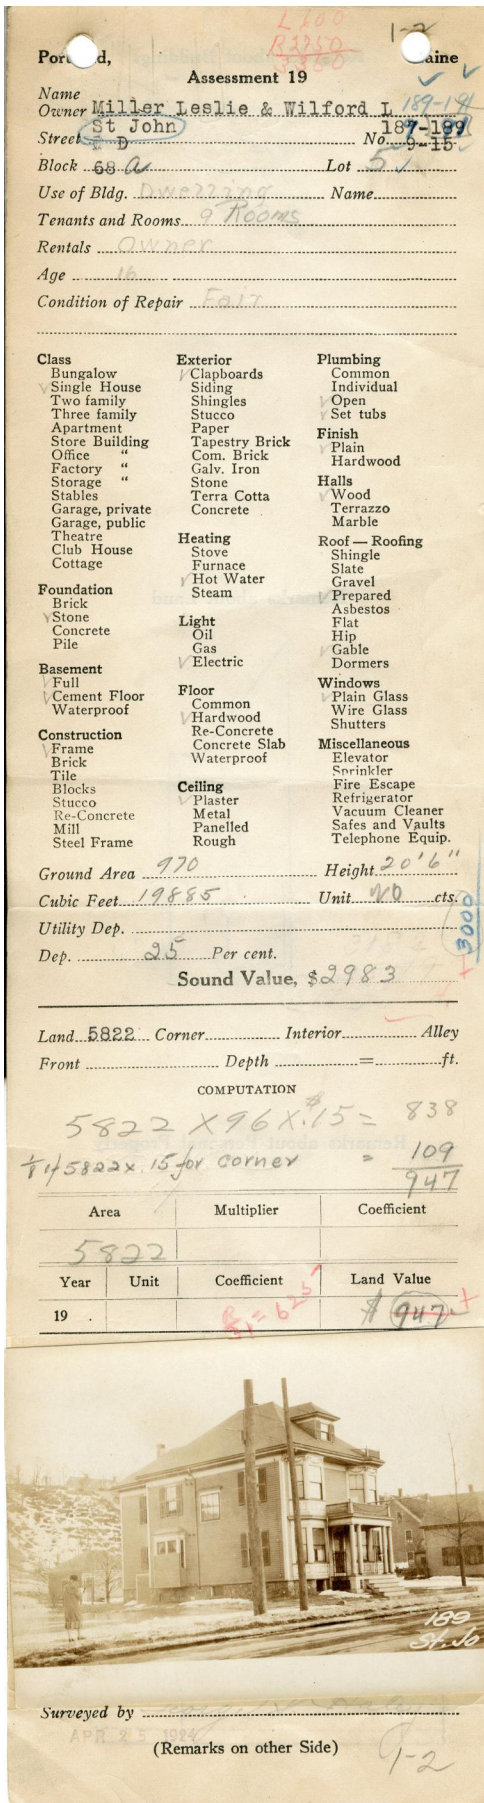 L 600
R 2750
3350
1-2
Port d, aine
Assessment 19
Name
Owner Miller Leslie & Wilford L 189-191
St John 187-189
Street & D No. 9-15
Block 68 a Lot 5
Use of Bldg. Dwelling Name
Tenants and Rooms 9 Rooms
Rentals Owner
Age 16
Condition of Repair Fair
Class
Bungalow
Single House
Two family
Three family
Apartment
Store Building
Office "
Factory "
Storage "
Stables
Garage, private
Garage, public
Theatre
Club House
Cottage
Foundation
Brick
Stone
Concrete
Pile
Basement
Full
Cement Floor
Waterproof
Construction
Frame
Brick
Tile
Blocks
Stucco
Re-Concrete
Mill
Steel Frame
Exterior
Clapboards
Siding
Shingles
Stucco
Paper
Tapestry Brick
Com. Brick
Galv. Iron
Stone
Terra Cotta
Concrete
Heating
Stove
Furnace
Hot Water
Steam
Light
Oil
Gas
Electric
Floor
Common
Hardwood
Re-Concrete
Concrete Slab
Waterproof
Ceiling
Plaster
Metal
Panelled
Rough
Plumbing
Common
Individual
Open
Set tubs
Finish
Plain
Hardwood
Halls
Wood
Terrazzo
Marble
Roof — Roofing
Shingle
Slate
Gravel
Prepared
Asbestos
Flat
Hip
Gable
Dormers
Windows
Plain Glass
Wire Glass
Shutters
Miscellaneous
Elevator
Sprinkler
Fire Escape
Refrigerator
Vacuum Cleaner
Safes and Vaults
Telephone Equip.
Ground Area 970 Height 20'6"
Cubic Feet 19885 Unit 20 cts.
Utility Dep.
3000
Dep. 25 Per cent.
Sound Value, $2983
Land 5822 Corner Interior Alley
Front Depth = ft.
COMPUTATION
5822 X 96 X $.15 = 838
5822 x .15 for corner = 109
947
Area Multiplier Coefficient
5822
Year Unit Coefficient Land Value
19 . R/31 = 625 $ 947
189
St. Jo
Surveyed by
APR 25 1924
(Remarks on other Side)
1-2